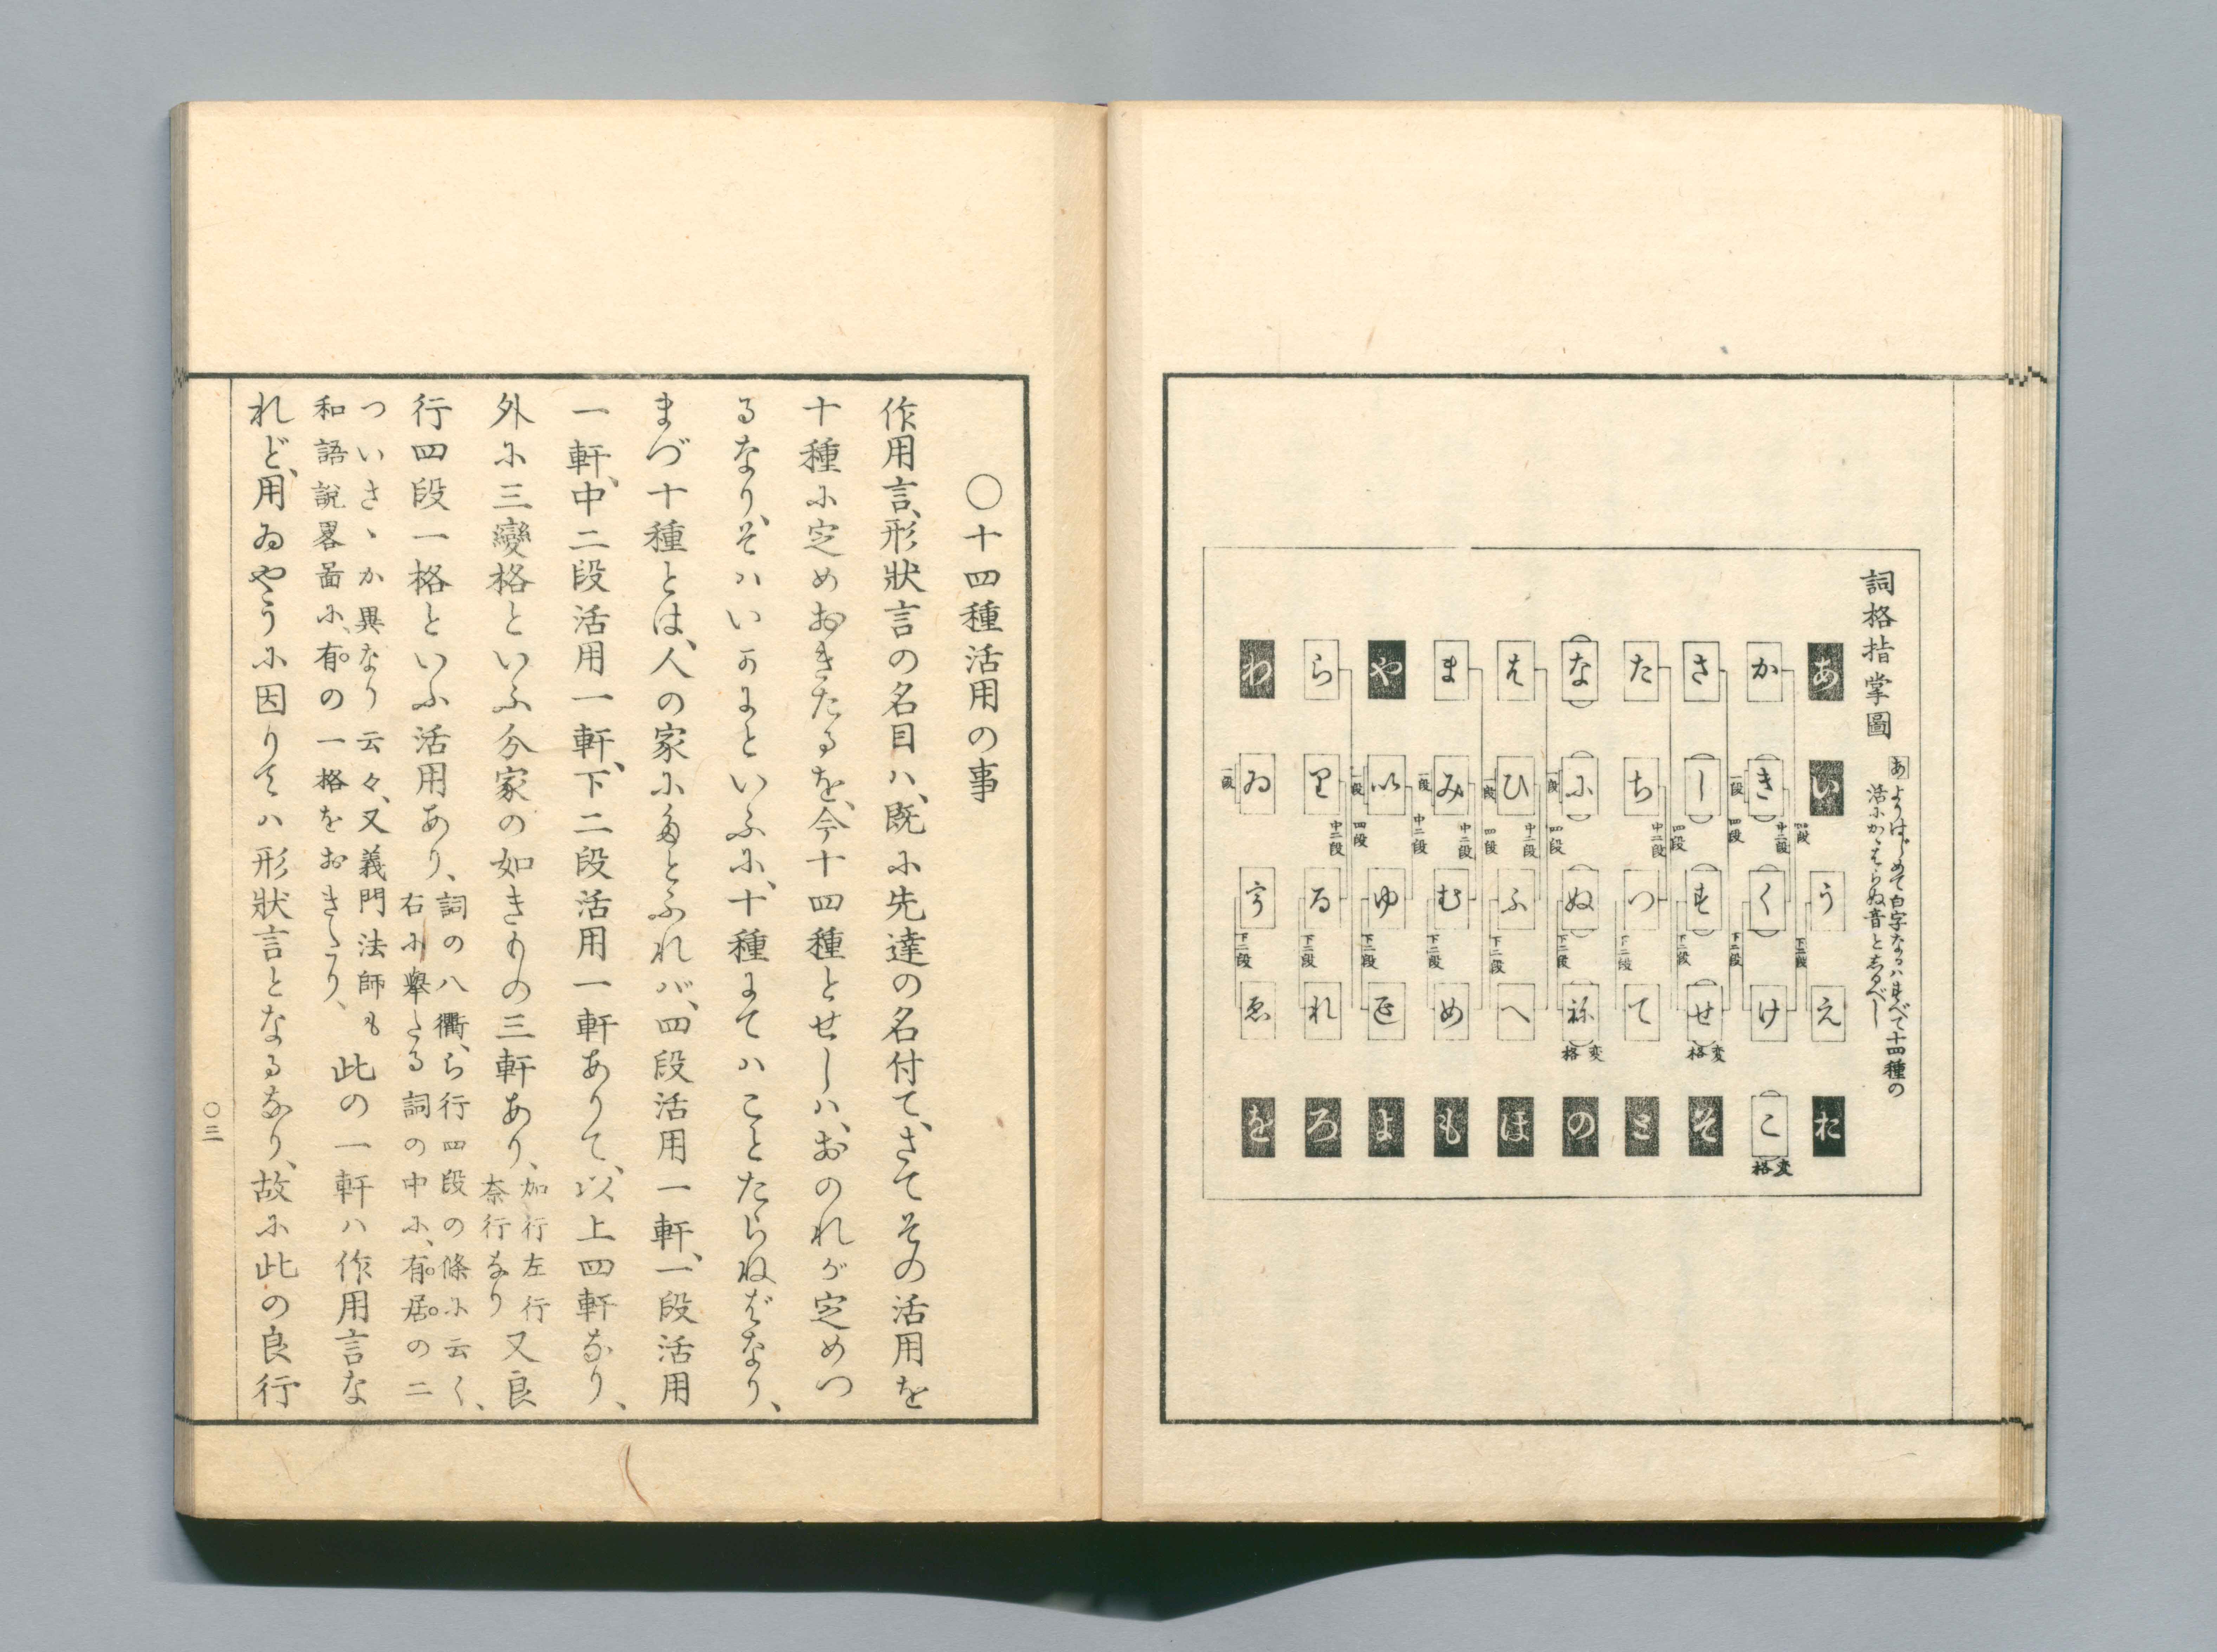 詞格指掌圖
あよりはじめて白字なるハすべて十四種の
活にかゝはらぬ音としるべし
あ い う え お
四段 下二段
か き く け こ
中二段 一段 四段 下二段 変格
さ し す せ そ
四段 下二段 変格
た ち つ て と
中二段 下二段
な に ぬ ね の
一段 四段 下二段 変格
は ひ ふ へ ほ
中二段 一段 四段 下二段
ま み む め も
中二段 一段 下二段
や い ゆ え よ
中二段 一段 四段 下二段
ら り る れ ろ
中二段 下二段
わ ゐ う ゑ を
一段 下二段
○十四種活用の事
作用言、形狀言の名目ハ、既に先達の名付て、さてその活用を
十種に定めおきたるを、今十四種とせしハ、おのれが定めつ
るなり、そハいかにといふに、十種にてハことたらねばなり、
まづ十種とは、人の家にたとふれバ、四段活用一軒、一段活用
一軒、中二段活用一軒、下二段活用一軒ありて、以上四軒なり、
外に三變格といふ分家の如きもの三軒あり、加行左行奈行なり又良
行四段一格といふ活用あり、詞の八衢、ら行四段の條に云く、右に擧たる詞の中に、有。居。の二
ついさゝか異なり云々、又義門法師も和語說畧啚に、有。の一格をおきたり、此の一軒ハ作用言な
れど、用ゐやうに因りてハ形狀言となるなり、故に此の良行
〇三